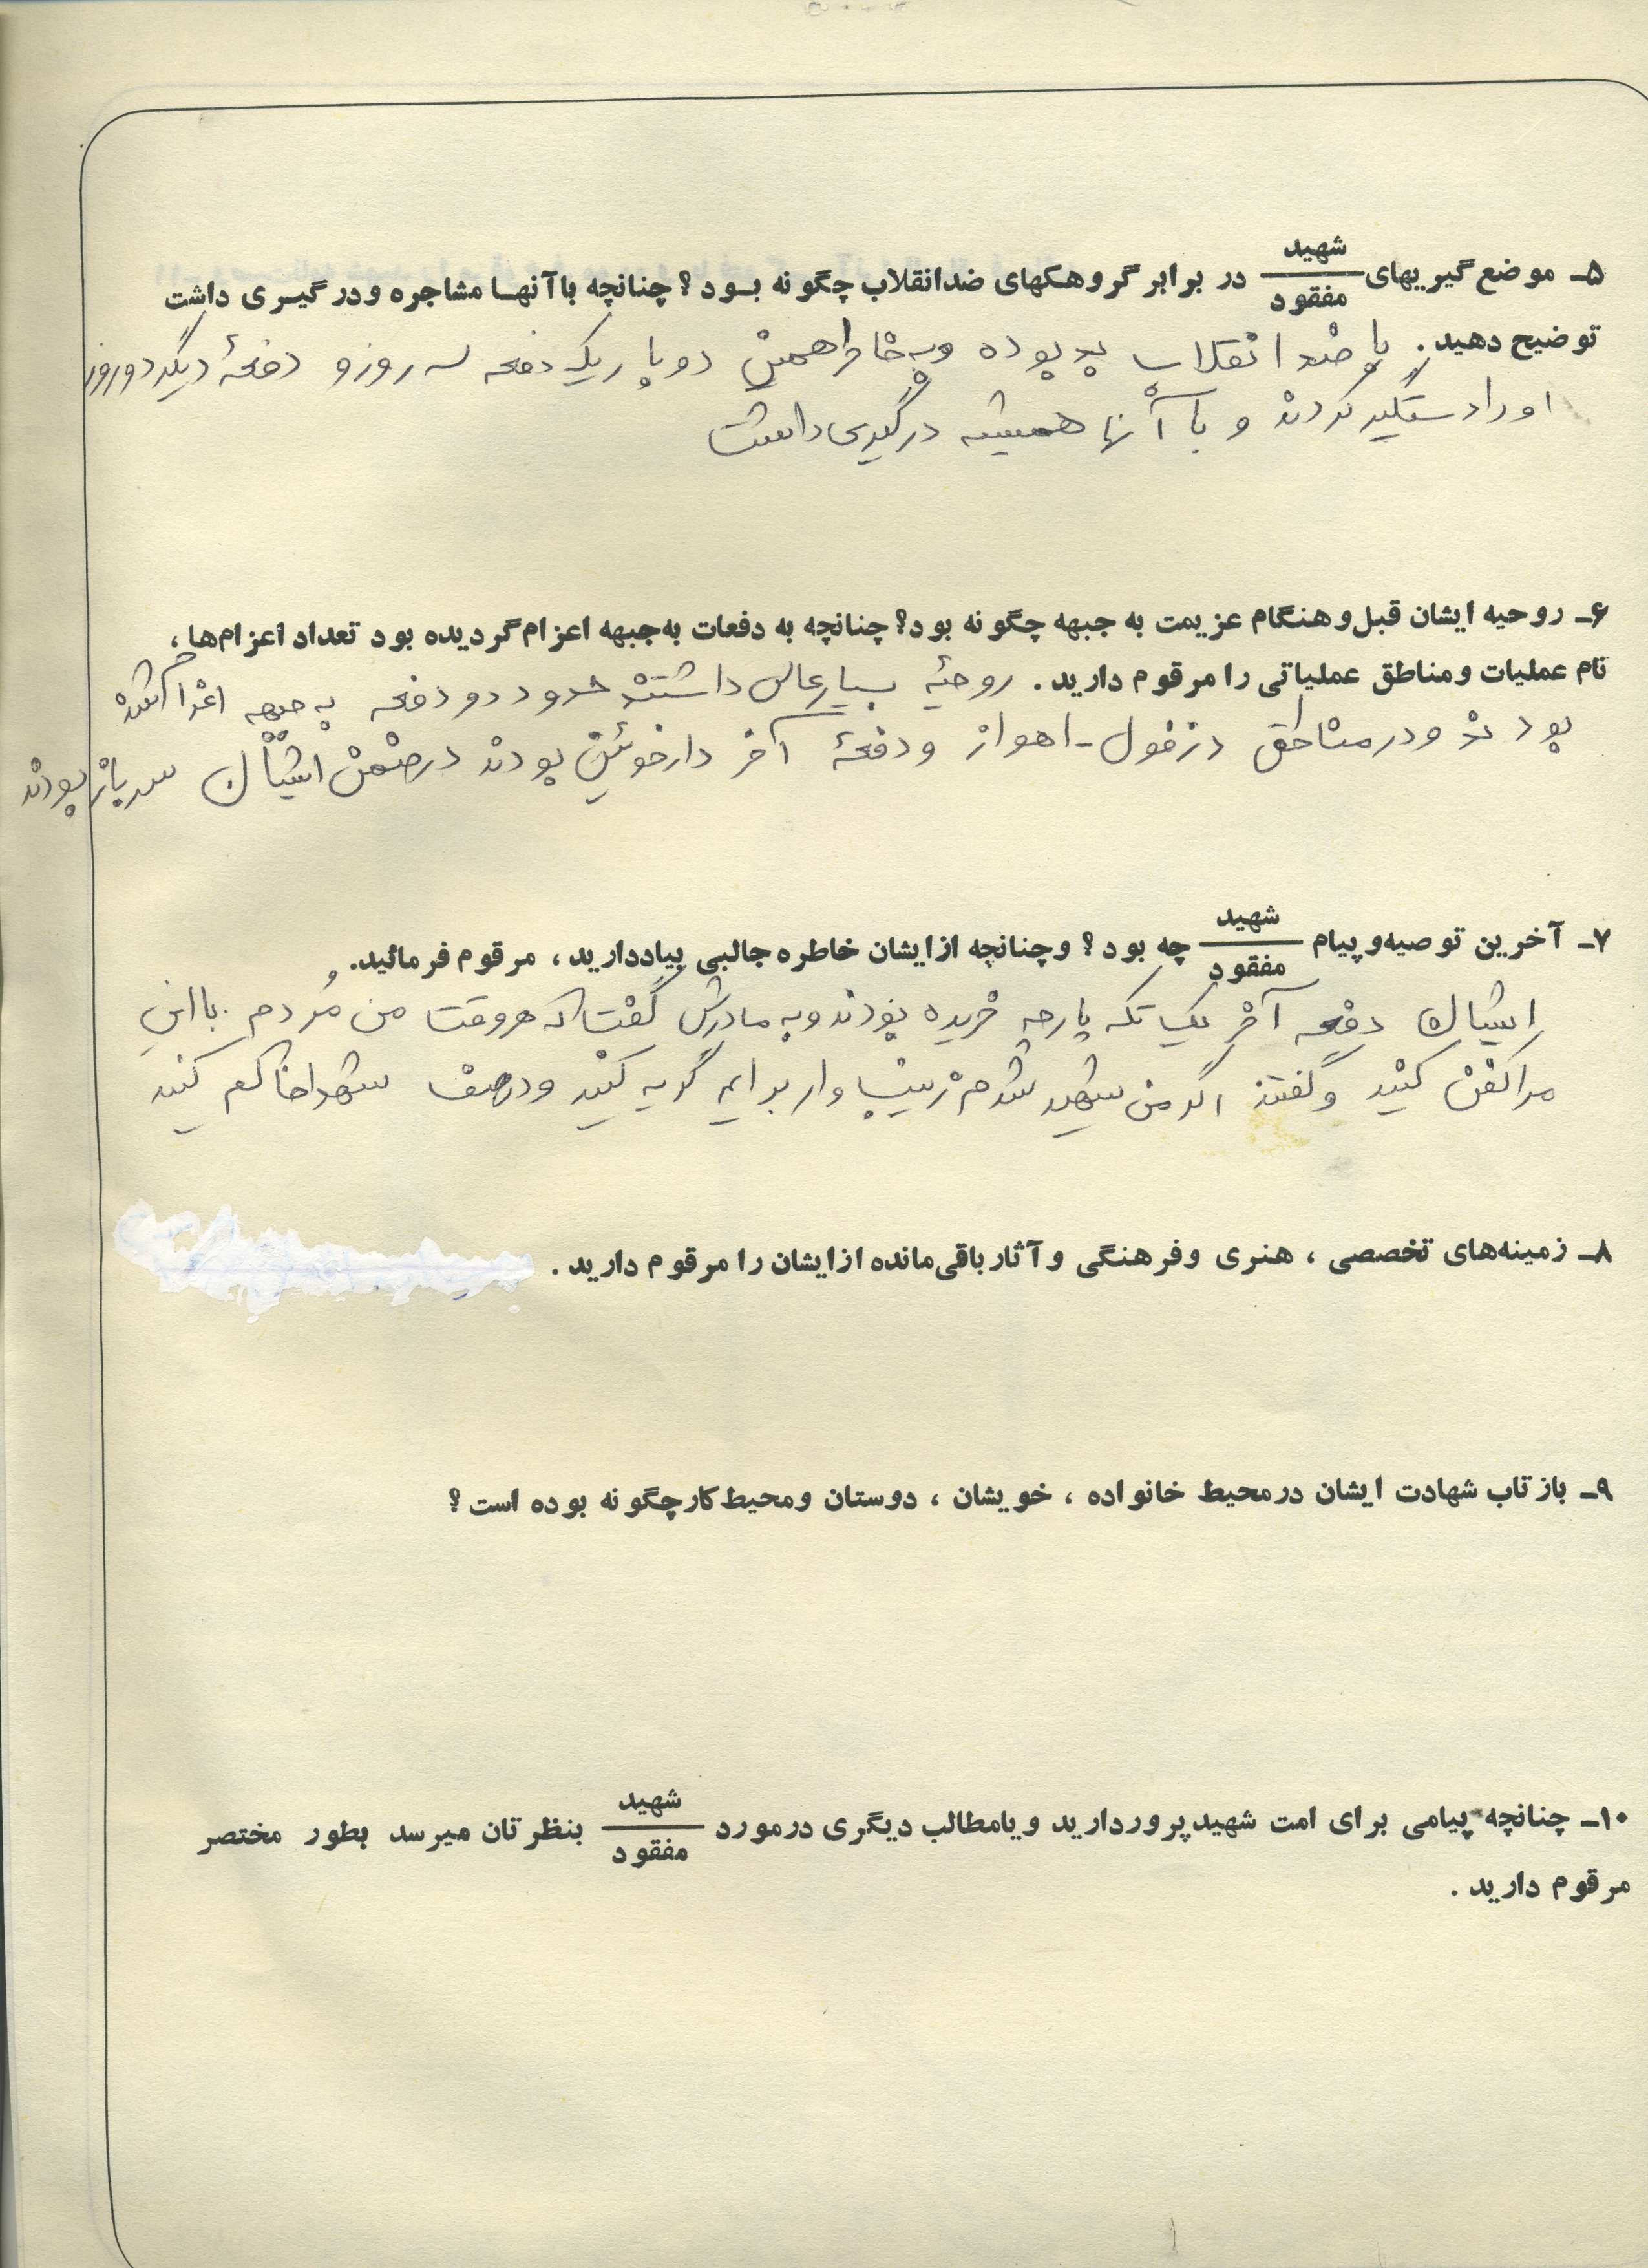 ۵ـ موضع‌گیریهای شهید / مفقود در برابر گروهکهای ضدانقلاب چگونه بود؟ چنانچه با آنها مشاجره و درگیری داشت
توضیح دهید. با ضد انقلاب بد بوده و به خاطر همین دو بار یک دفعه سه روز و دفعهٔ دیگر دو روز
او را دستگیر کردند و با آنها همیشه درگیری داشت
۶ـ روحیه ایشان قبل و هنگام عزیمت به جبهه چگونه بود؟ چنانچه به دفعات به‌جبهه اعزام گردیده بود تعداد اعزام‌ها،
نام عملیات و مناطق عملیاتی را مرقوم دارید. روحیهٔ بسیار عالی داشتند حدود دو دفعه به جبهه اعزام شده
بودند و در مناطق دزفول ـ اهواز و دفعهٔ آخر دارخوئین بودند در ضمن ایشان سرباز بودند
۷ـ آخرین توصیه و پیام شهید / مفقود چه بود؟ و چنانچه از ایشان خاطره جالبی بیاد دارید، مرقوم فرمائید.
ایشان دفعه آخر یک تکه پارچه خریده بودند و به مادرش گفت که هر وقت من مُردم با این
مرا کفن کنید و گفتند اگر من شهید شدم زینب وار برایم گریه کنید و در صف شهدا خاکم کنید
۸ـ زمینه‌های تخصصی، هنری و فرهنگی و آثار باقی‌مانده از ایشان را مرقوم دارید.
۹ـ بازتاب شهادت ایشان در محیط خانواده، خویشان، دوستان و محیط کار چگونه بوده است؟
۱۰ـ چنانچه پیامی برای امت شهیدپرور دارید و یا مطالب دیگری در مورد شهید / مفقود بنظرتان میرسد بطور مختصر
مرقوم دارید.